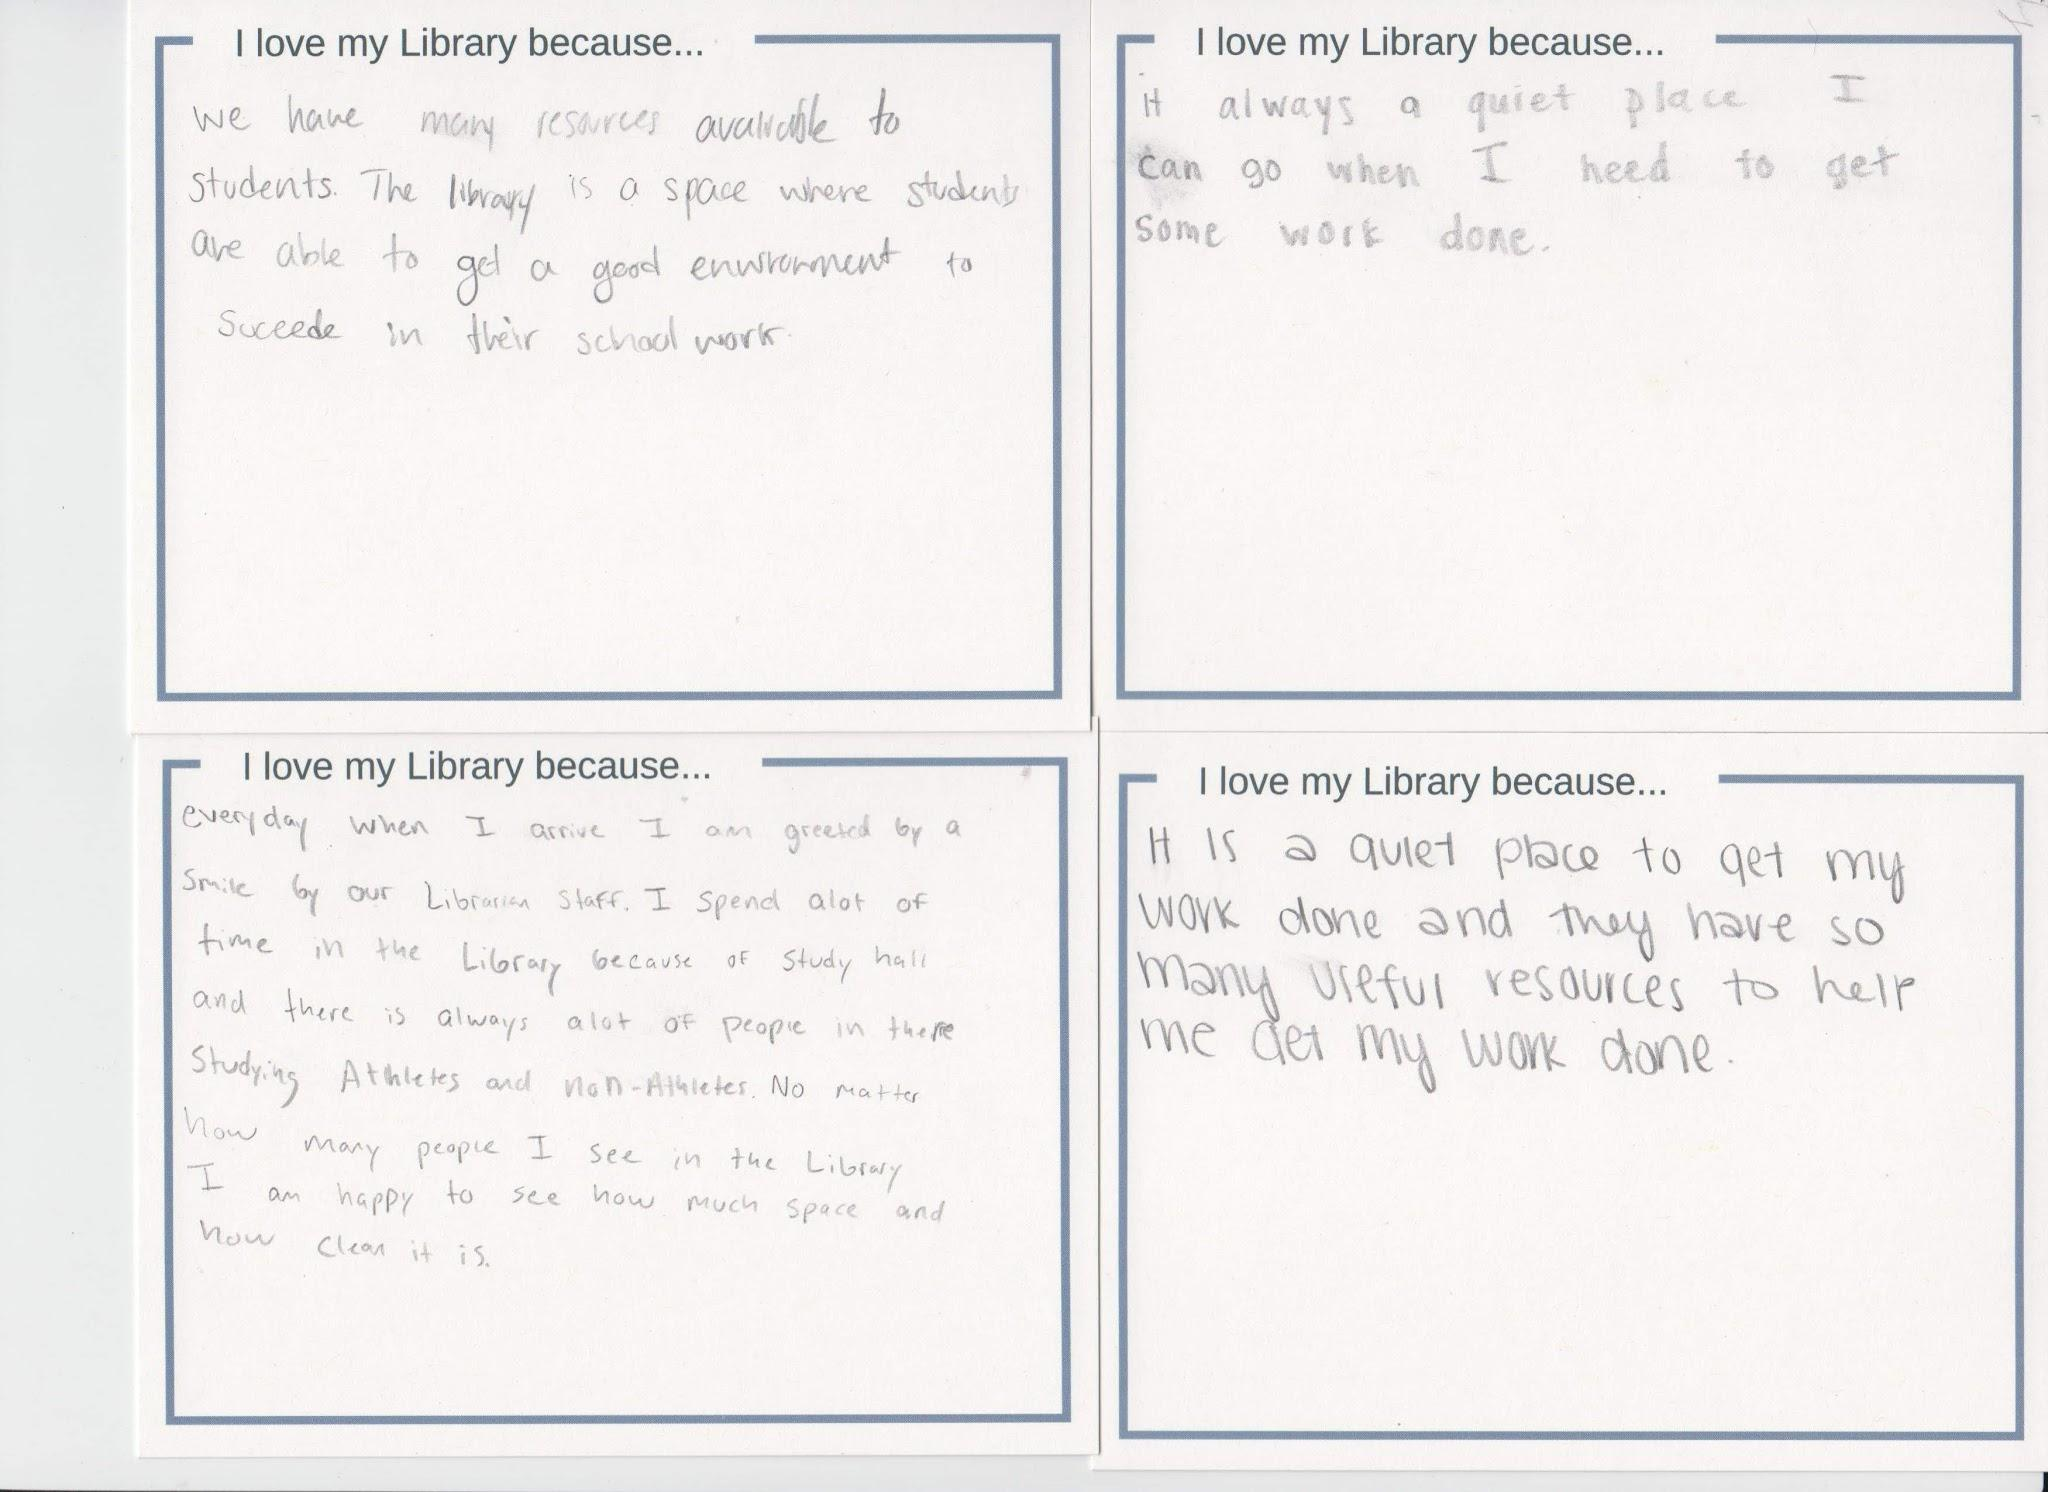 I love my Library because...
we have many resources available to
students. The library is a space where students
are able to get a good environment to
suceede in their school work.
I love my Library because...
it always a quiet place I
can go when I need to get
some work done.
I love my Library because...
everyday when I arrive I am greeted by a
smile by our Librarian Staff. I spend alot of
time in the Library because of study hall
and there is always alot of people in there
Studying Athletes and non-Athletes. No matter
how many people I see in the Library
I am happy to see how much space and
how clean it is.
I love my Library because...
It is a quiet place to get my
work done and they have so
many useful resources to help
me get my work done.